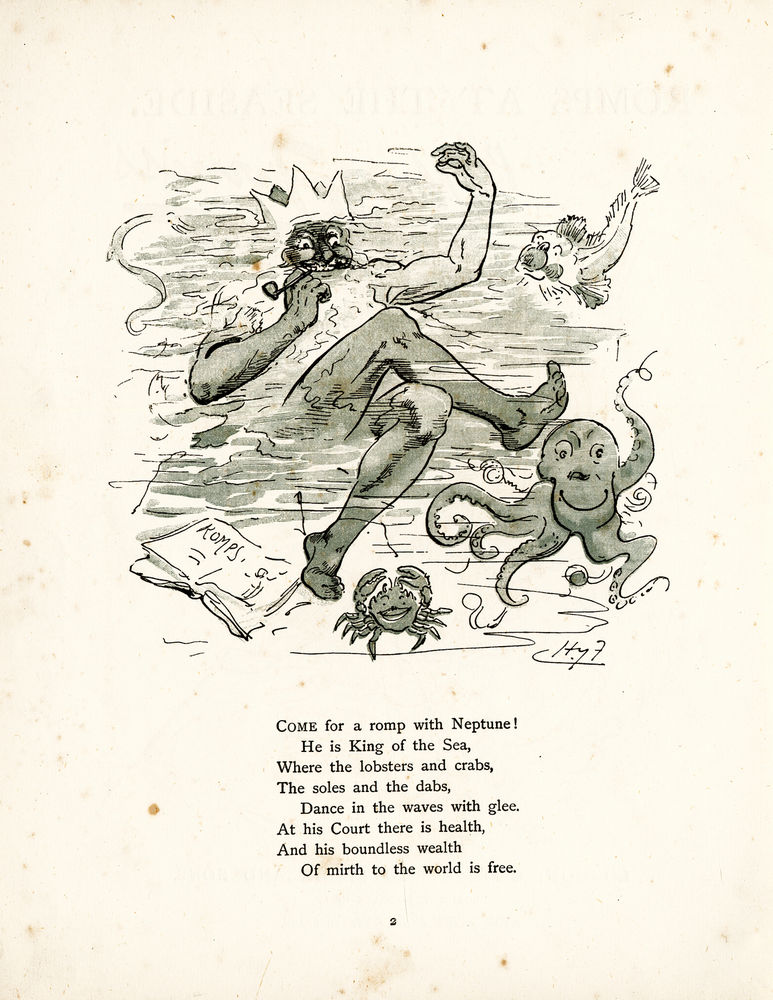 ROMPS AT THE SEASIDE.
ROMPS.
H.y F
COME for a romp with Neptune!
He is King of the Sea,
Where the lobsters and crabs,
The soles and the dabs,
Dance in the waves with glee.
At his Court there is health,
And his boundless wealth
Of mirth to the world is free.
2